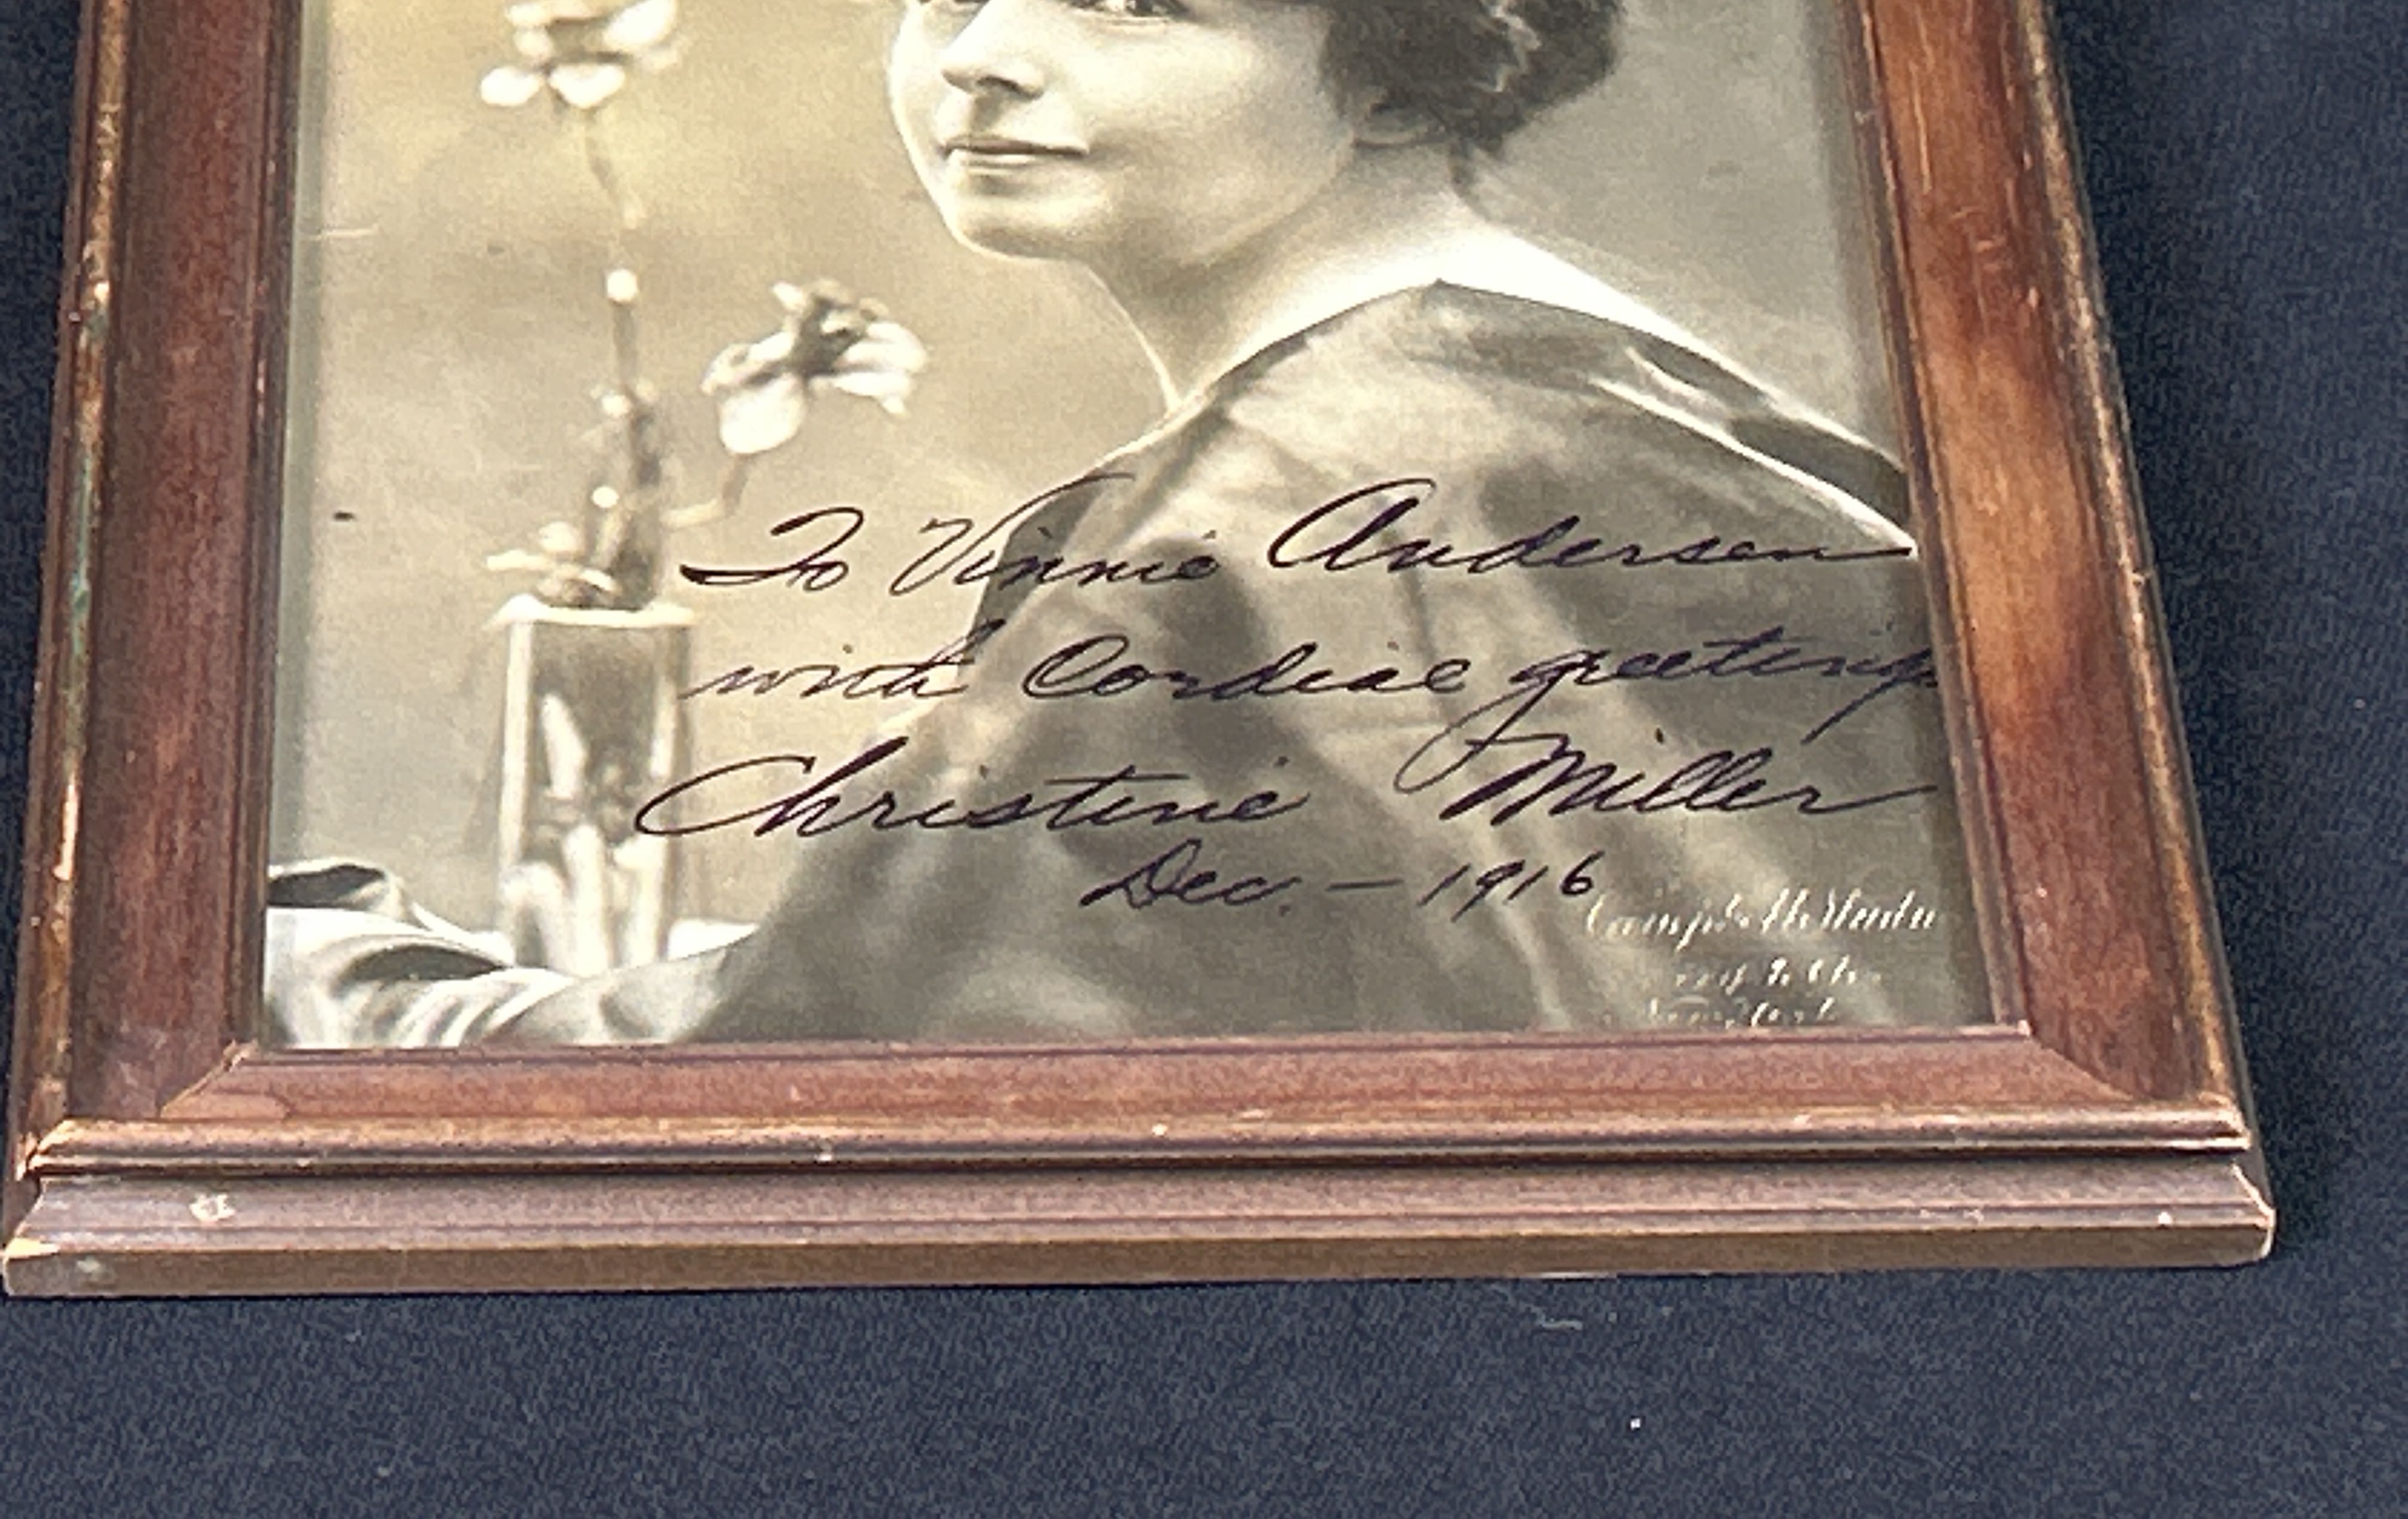 To Vinnie Andersen
with Cordial greetings
Christine Miller
Dec. – 1916
Campbell Studio
New York